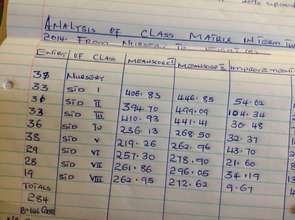 ANALYSIS OF CLASS MATRIX INTERIM
2014 FROM NURSERY TO
ENTRY OF CLASS MEANSCORE I MEANSCORE II IMPROVEMENT
38 NURSERY
33 STD I 405.83 446.85 54.02
STD II 394.70 499.09 104.34
33 STD III 410.93 441.4 30.48
36 STD IV 236.13 268.50 32.37
38 STD V 219.26 262.96 43.70
29 STD VI 257.30 278.90 21.60
28 STD VII 261.86 296.05 34.19
19 STD VIII 262.95 272.62 9.67
TOTALS
284